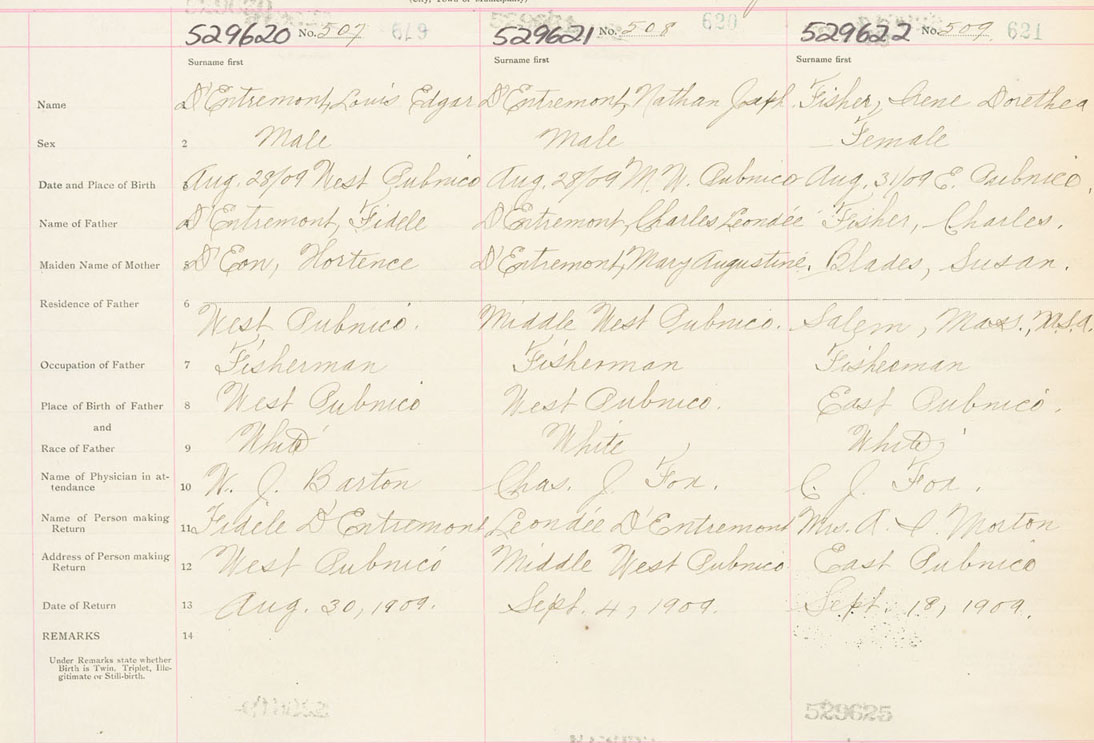 (City, Town or Municipality)
529620 No. 507 619 529621 No. 508 620 529622 No. 509 621
Surname first Surname first Surname first
Name D'Entremont, Louis Edgar D'Entremont, Nathan Joseph Fisher, Irene Dorethea
Sex 2 Male Male Female
Date and Place of Birth Aug. 28/09 West Pubnico Aug. 28/09 M. W. Pubnico Aug. 31/09 E. Pubnico.
Name of Father D'Entremont, Fidele D'Entremont, Charles Leondée Fisher, Charles.
Maiden Name of Mother D'Eon, Hortence D'Entremont, Mary Augustine. Blades, Susan.
Residence of Father 6 West Pubnico. Middle West Pubnico. Salem, Mass., U.S.A.
Occupation of Father 7 Fisherman Fisherman Fisherman
Place of Birth of Father 8 West Pubnico West Pubnico. East Pubnico.
and
Race of Father 9 White White White
Name of Physician in at-
tendance 10 W. J. Barton Chas. J. Fox. C. J. Fox.
Name of Person making
Return 11 Fidéle D'Entremont Leondée D'Entremont Mrs. A. Morton
Address of Person making
Return 12 West Pubnico Middle West Pubnico East Pubnico
Date of Return 13 Aug. 30, 1909. Sept. 4, 1909. Sept. 18, 1909.
REMARKS 14
Under Remarks state whether
Birth is Twin, Triplet, Ille-
gitimate or Still-birth.
529625